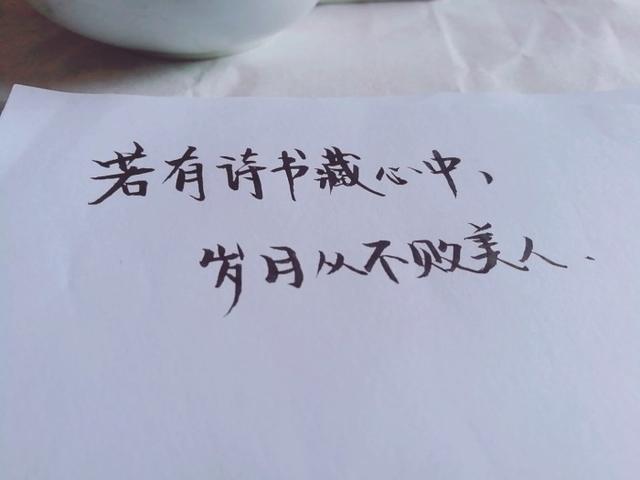 若有诗书藏心中、
岁月从不败美人.